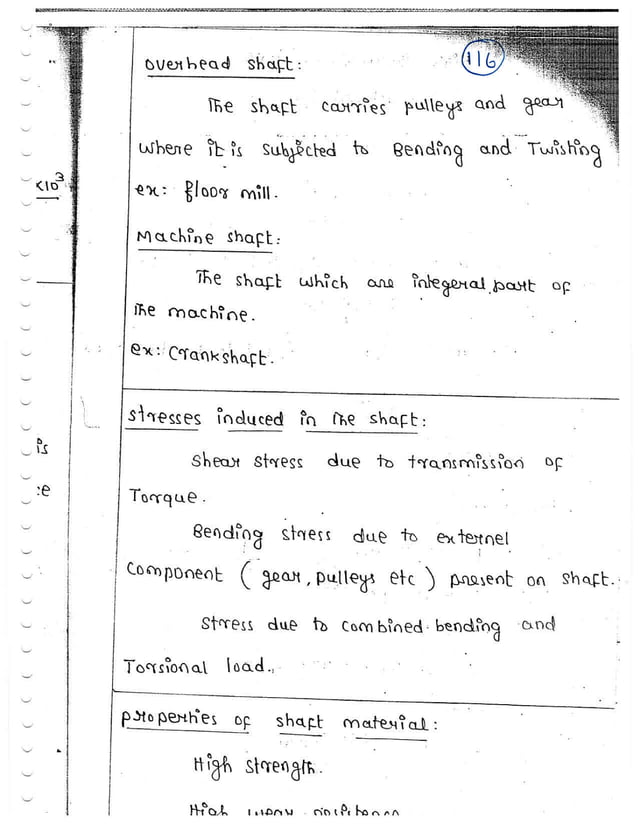 overhead shaft:
116
The shaft carries pulleys and gear
where it is subjected to Bending and Twisting
ex: floor mill.
×10³
Machine shaft:
The shaft which are integeral part of
The machine.
ex: Crankshaft.
stresses induced in The shaft:
is
Shear stress due to transmission of
:e
Torque.
Bending stress due to externel
component ( gear, pulleys etc ) present on shaft.
Stress due to combined bending and
Torsional load.
properties of shaft material:
High strength.
High